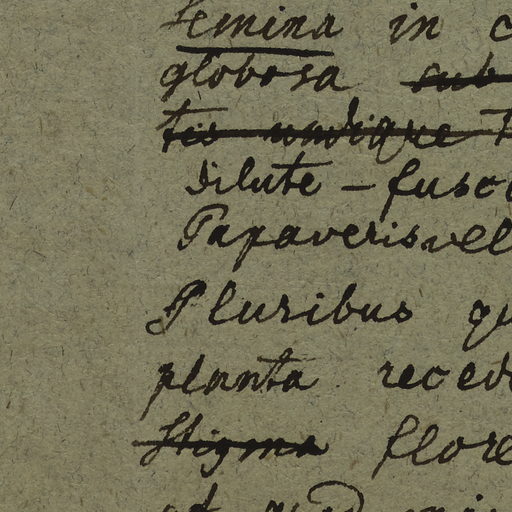 Semina in
globosa sub
tis undique
dilute - fusc
Papaveris vel
Pluribus qu
planta reced
Stigma flore
et quod